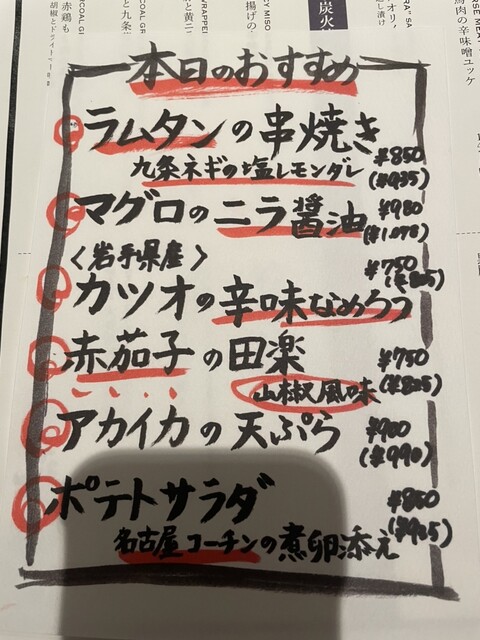 炭火
本日のおすすめ
ラムタンの串焼き
九条ネギの塩レモンダレ
¥850
(¥935)
マグロのニラ醤油
¥980
(¥1,078)
〈岩手県産〉
カツオの辛味なめろう
¥750
(¥825)
赤茄子の田楽
山椒風味
¥750
(¥825)
アカイカの天ぷら
¥900
(¥990)
ポテトサラダ
名古屋コーチンの煮卵添え